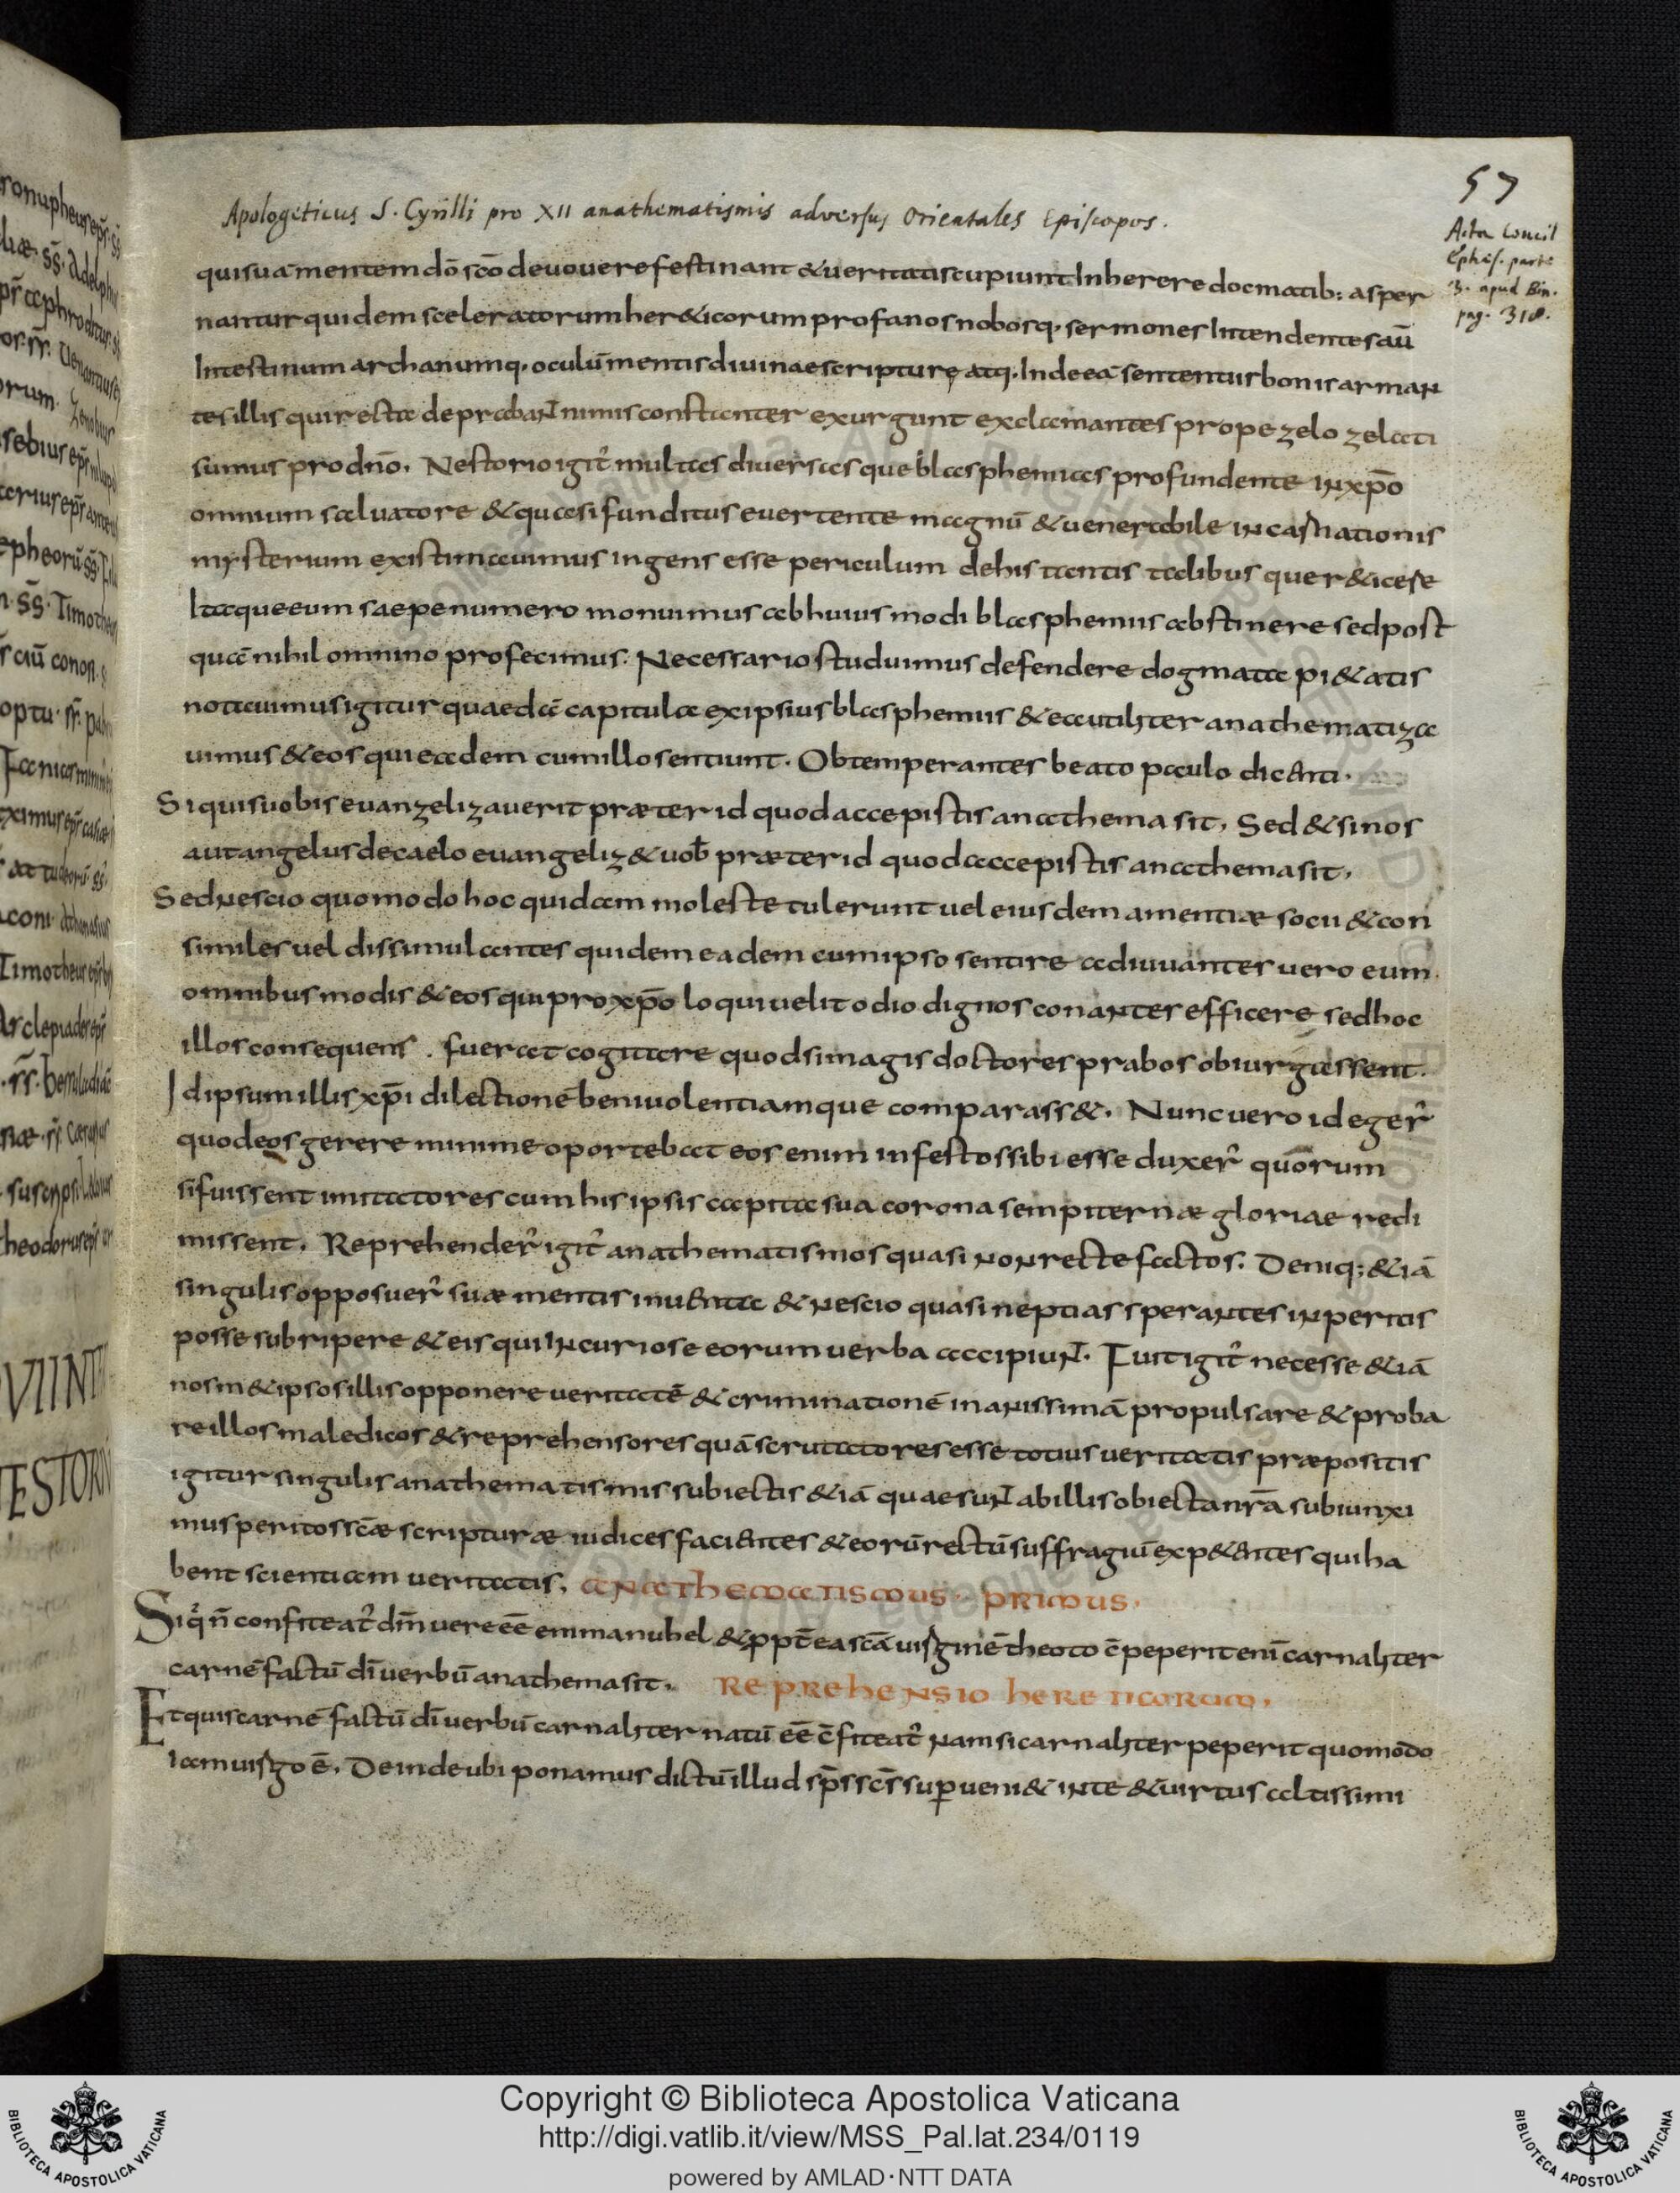 57
Apologeticus S. Cyrilli pro XII anathematismis adversus Orientales Episcopos.
Acta Concil
Ephes. parte
3. apud Bin.
pag. 318.
qui suā mentem dō scō deuouere festinant & ueritatis cupiunt Inherere docmatib: asper
nantur quidem sceleratorum her&icorum profanos nobosq· sermones Intendentes aū
Intestinum archanumq· oculū mentis diuinae scripturę atq· Inde eā sententiis bonis arman
tes illis qui recta deprabant nimis constanter exurgunt exclamantes prope zelo zelati
sumus pro dnō. Nestorio igit̃ multas diuersas que blasphemias profundente in xp̄o
omnium saluatore & quasi funditus euertente magnū & uenerabile incarnationis
mysterium existimauimus ingens esse periculum de his tantis talibus quer&icese
Itaque eum saepenumero monuimus ab huius modi blasphemiis abstinere sed post
quā nihil omnino profecimus. Necessario studuimus defendere dogmata pi&atis
notauimus igitur quaedā capitula ex ipsius blasphemiis & ea utiliter anathematiza
uimus & eos qui eadem cum illo sentiunt. Obtemperantes beato paulo dicenti.
Si quis uobis euangelizauerit præter id quod accepistis anathema sit, Sed & si nos
aut angelus de caelo euangeliz& uob̄ præter id quod accepistis anathema sit,
Sed nescio quomodo hoc quidam moleste tulerunt uel eiusdem amentiæ socii & con
similes uel dissimulantes quidem eadem cum ipso sentire adiuuantes uero eum
omnibus modis & eos qui pro xp̄o loqui uelit odio dignos conantes efficere sed hoc
illos consequens . fuerat cogitare quod si magis doctores prabos obiurgassent.
Id ipsum illis xp̄i dilectionē beniuolentiamque comparass&. Nunc uero id eger̃
quod eos gerere minime oportebat eos enim infestos sibi esse duxer̃ quorum
si fuissent imitatores cum his ipsis capita sua corona sempiternæ gloriae redi
missent. Reprehender̃ igit̃ anathematismos quasi non recte factos. Deniq; &iā
singulis opposuer̃ suæ mentis inuenta & nescio quas ineptias sperantes inperitis
posse subripere & eis qui incuriose eorum uerba accipiunt. Fuit igit̃ necesse &iā
nosm&ipsos illis opponere ueritatē & criminationē inanissimā propulsare & proba
re illos maledicos & reprehensores quā scrutatores esse totius ueritatis præpositis
igitur singulis anathematismis subiectis &iā quae sunt ab illis obiecta nr̄a subiunxi
mus peritos scǣ scripturæ iudices facientes & eorū rectū suffragiū exp&entes qui ha
bent scientiam ueritatis, anathematismus · primus.
Siq̃ n̄ confiteat̃ dm̄ uere eē emmanuhel & ppt̄ ea scā uirginē theoto c̄ peperit enī carnaliter
carnē factū dī uerbū anathema sit. Reprehensio hereticorum,
Et quis carnē factū dī uerbū carnaliter natū eē c̄fiteat̃ nam si carnaliter peperit quomodo
iam uirgo ē. Deinde ubi ponamus dictū illud sp̄s scs̄ superueni& in te & uirtus altissimi
Copyright © Biblioteca Apostolica Vaticana
http://digi.vatlib.it/view/MSS_Pal.lat.234/0119
powered by AMLAD·NTT DATA
BIBLIOTECA APOSTOLICA VATICANA
BIBLIOTECA APOSTOLICA VATICANA